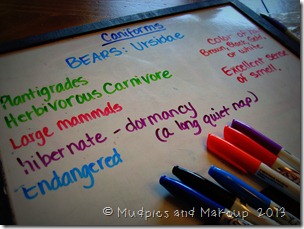 Caniforms
BEARS: Ursidae
Plantigrades
Herbivorous Carnivore
Large mammals
Hibernate - dormancy
(a long quiet nap)
Endangered
Color
Brown, Black,
or white
Excellent sense
of smell.
© Mudpies and Makeup 2013